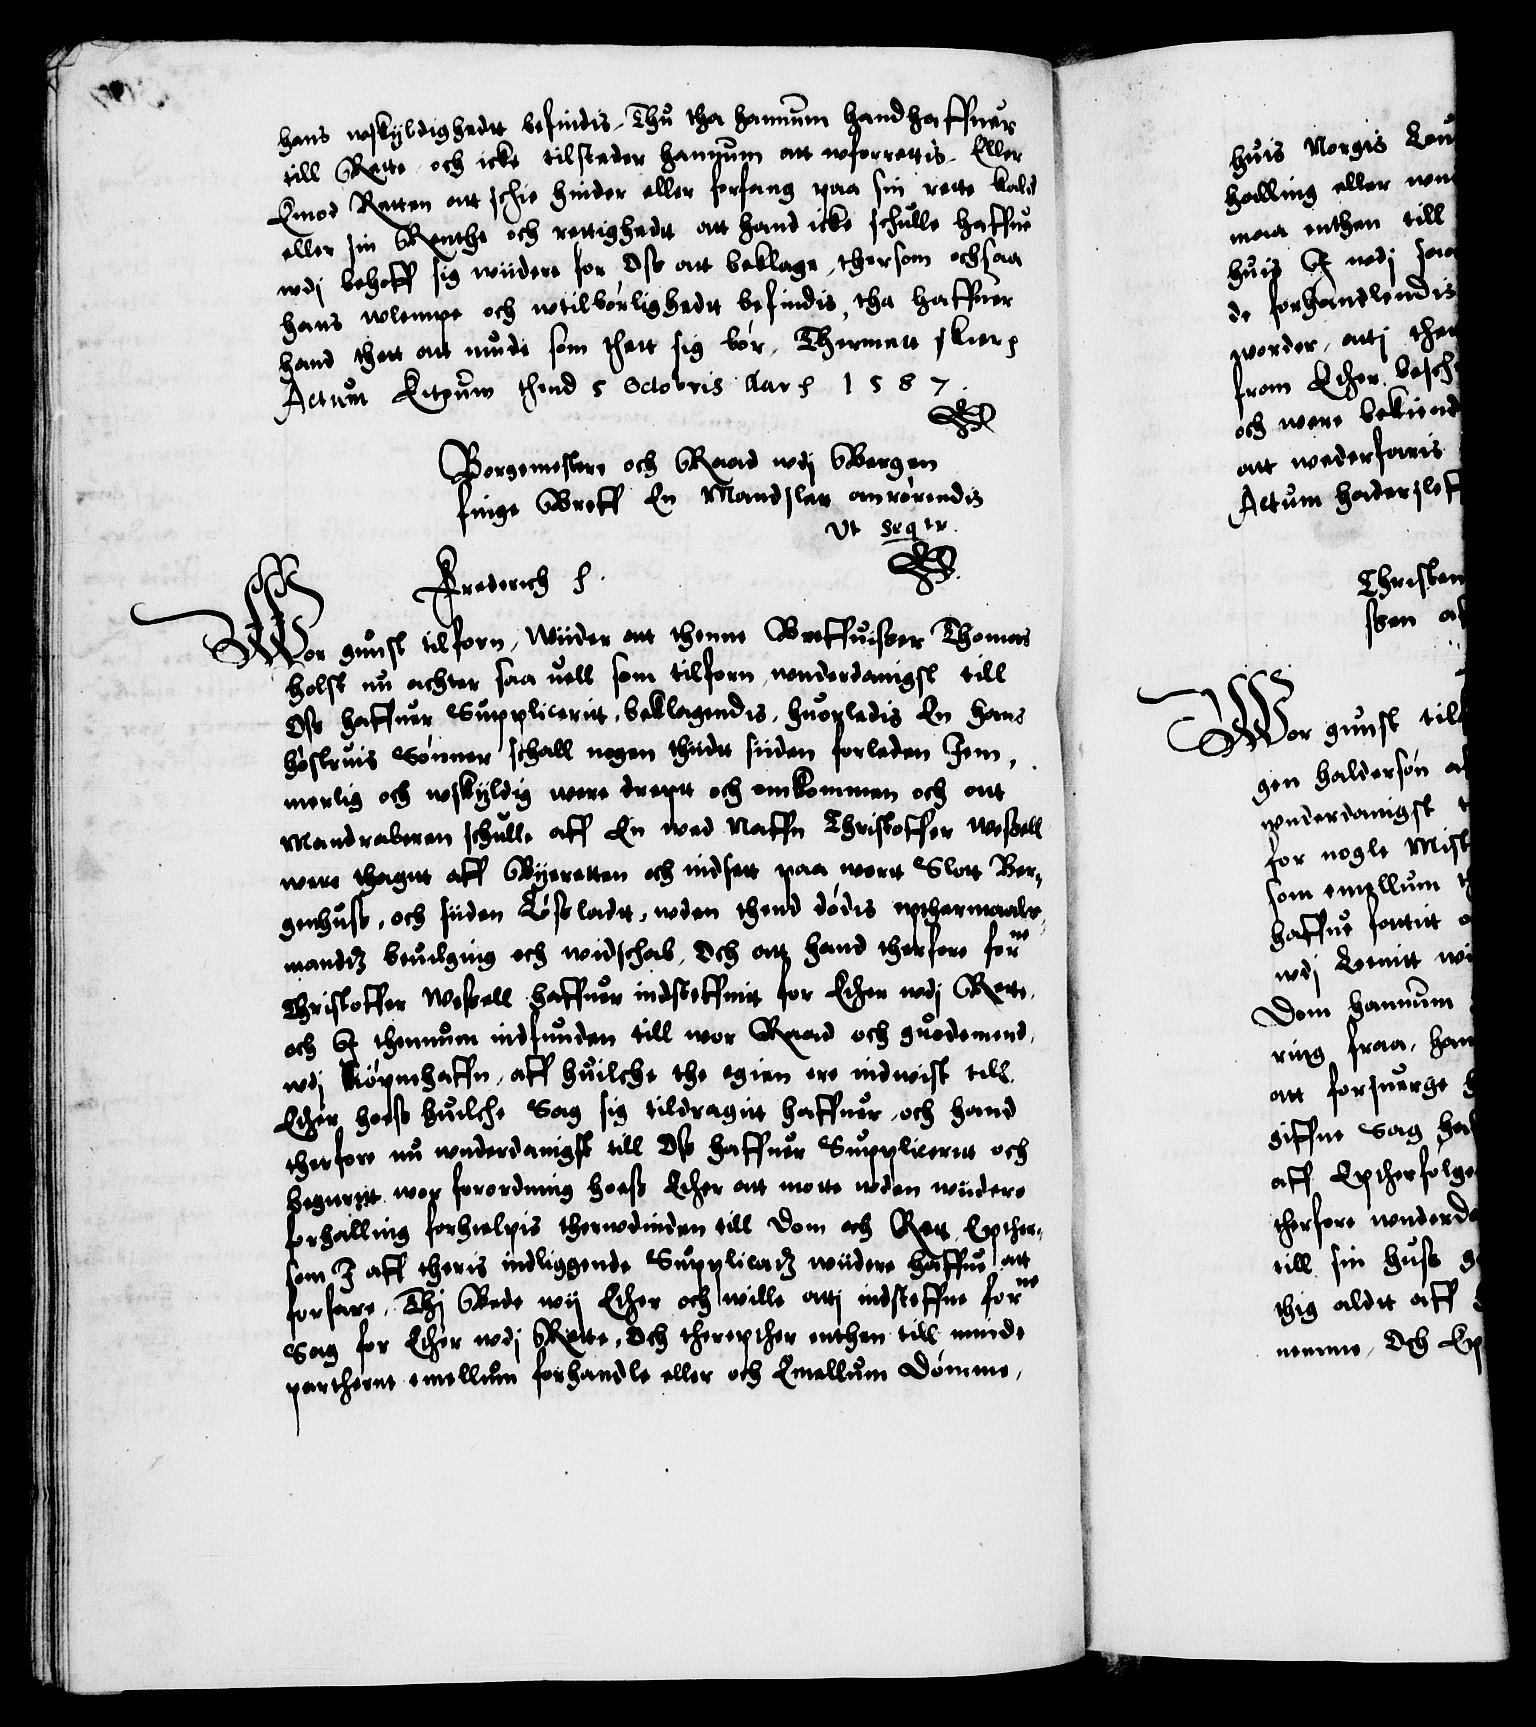 hans wskyldighedt befindis, Thu tha hannum handhaffuer
till Rette och icke tilsteder hannum att wforrettis, Eller
Emod Retten att schie hinder eller forfang paa sin rette kald
eller sin Renthe och rettighedt att hand icke schulle haffue
wdj behoff sig wiidere for Oss att beklage, thersom ochsaa
hans wlempe och wtilbørlighedt befindis, tha haffuer
hand thett att niude som thett sig bør, Thermett skier
Actum thend 5 Octobris Aar 1587.
Borgemestere och Raad wdj Bergen
finge Breff En Mandslet anrørendis
vt seqtr.
Frederich
Wor gunst tilforn, Wiider att thenne Breffuiser Thomas
Holst nu achter saa uell som tilforn, wnderdanigst till
Oss haffuer Supplicerit, beklagendis, huorledis En hans
høstruis Sønner schall nogen thiidt siiden forleden Jem,
merlig och wskyldig were drept och omkommen och att
Mandraberen schulle aff En wed Naffn Christoffer Wessell
were thagit aff Byeretten och indsett paa wort Slott Ber,
genhuss, och siiden Løss ladt, wden thend dødis epthermaals,
mandz beuilging och widschab, Och att hand therfore forne
Christoffer Wessell haffuer indsteffnit for Ether wdj Rette,
och I thennum indfunden till wor Raad och guodemend,
wdj Kiøpnehaffn, aff huilche the igien ere indwist till
Ether hoess huilche Sag sig tildragit haffuer, och hand
therfore nu wnderdanigst till Oss haffuer Supplicerit och
begerett wor forordning hoess Ether att motte wden wiidere
forhalling forhielpis therwdinden till Dom och Rett, Epther,
som I aff theris indliggende Supplicatz wiidere haffue att
forfare, Thj Bede wij Ether och wille atj indsteffne forne
Sag for Ether wdj Rette, Och therepther enthen till minde
partherne emellum forhandle eller och Emellum Dømme,
huis Norgis Lou
halling eller
maa enthen till
huis I wdj saa
de forhandlendis
worder, atj ther
from Ether besch
och were bekiend
att wederfaris
Actum Hadersleff
Christen
sten
Wor gunst til
gen Haldersøn
wnderdanigst
for nogle Mist
som emellum
haffue
wdj
Dom hannum
ring fraa, han
att forsuerge
giffne Sag
aff Eptherfølge
therfore wnderda
till sin huss
thig aldt aff
nemme, Och Ep